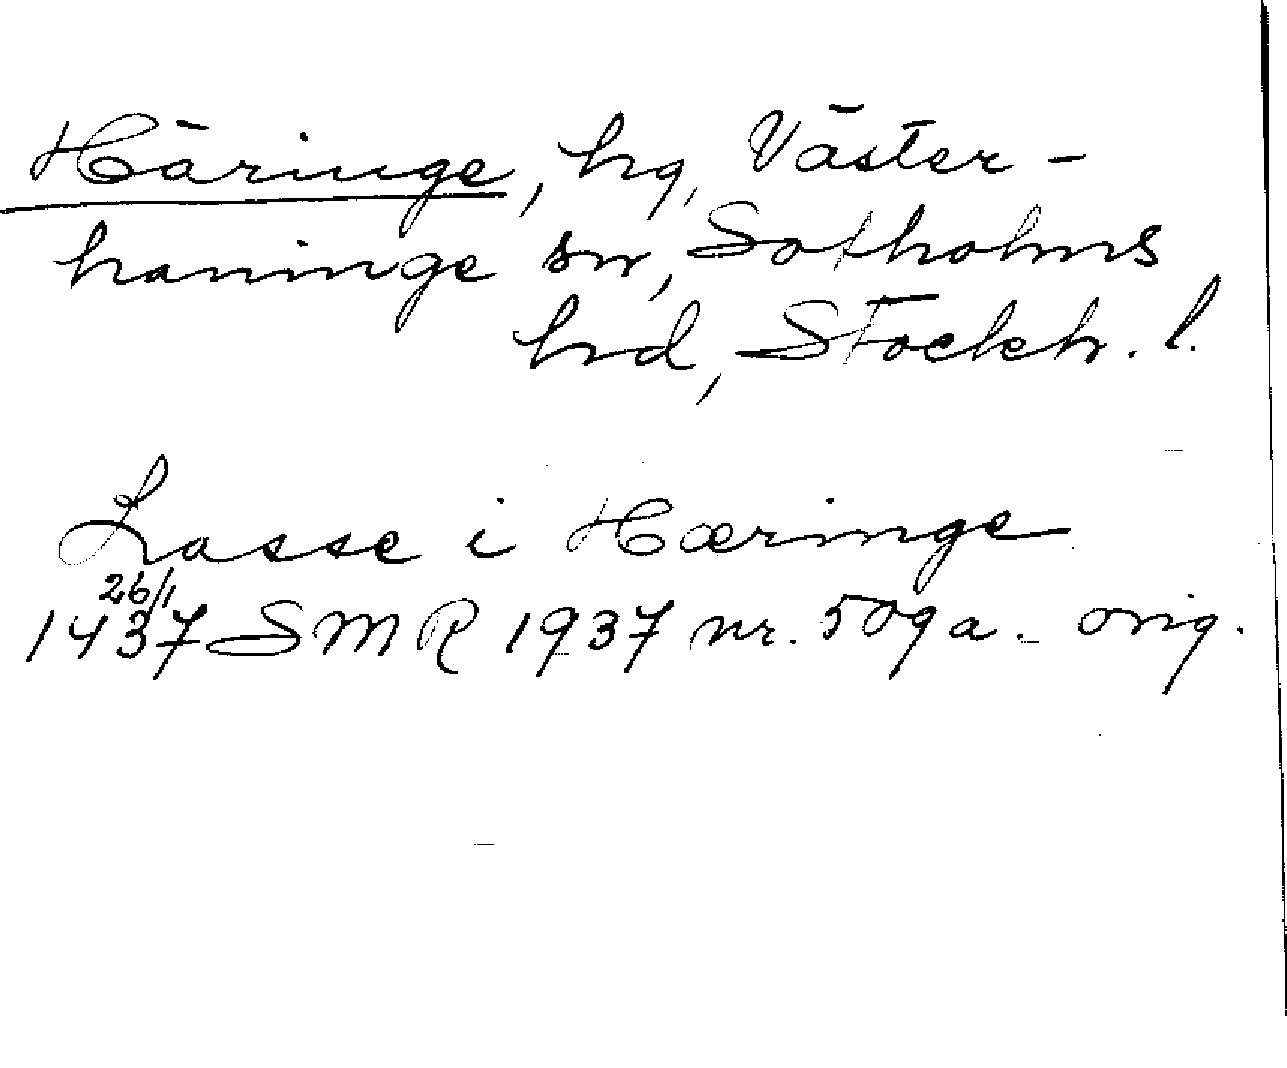 Häringe, hg, Väster-
haninge sn, Sotholms
hd, Stockh. l.
Lasse i Hæringe
26/1
1437 SMR 1937 nr. 509a. orig.